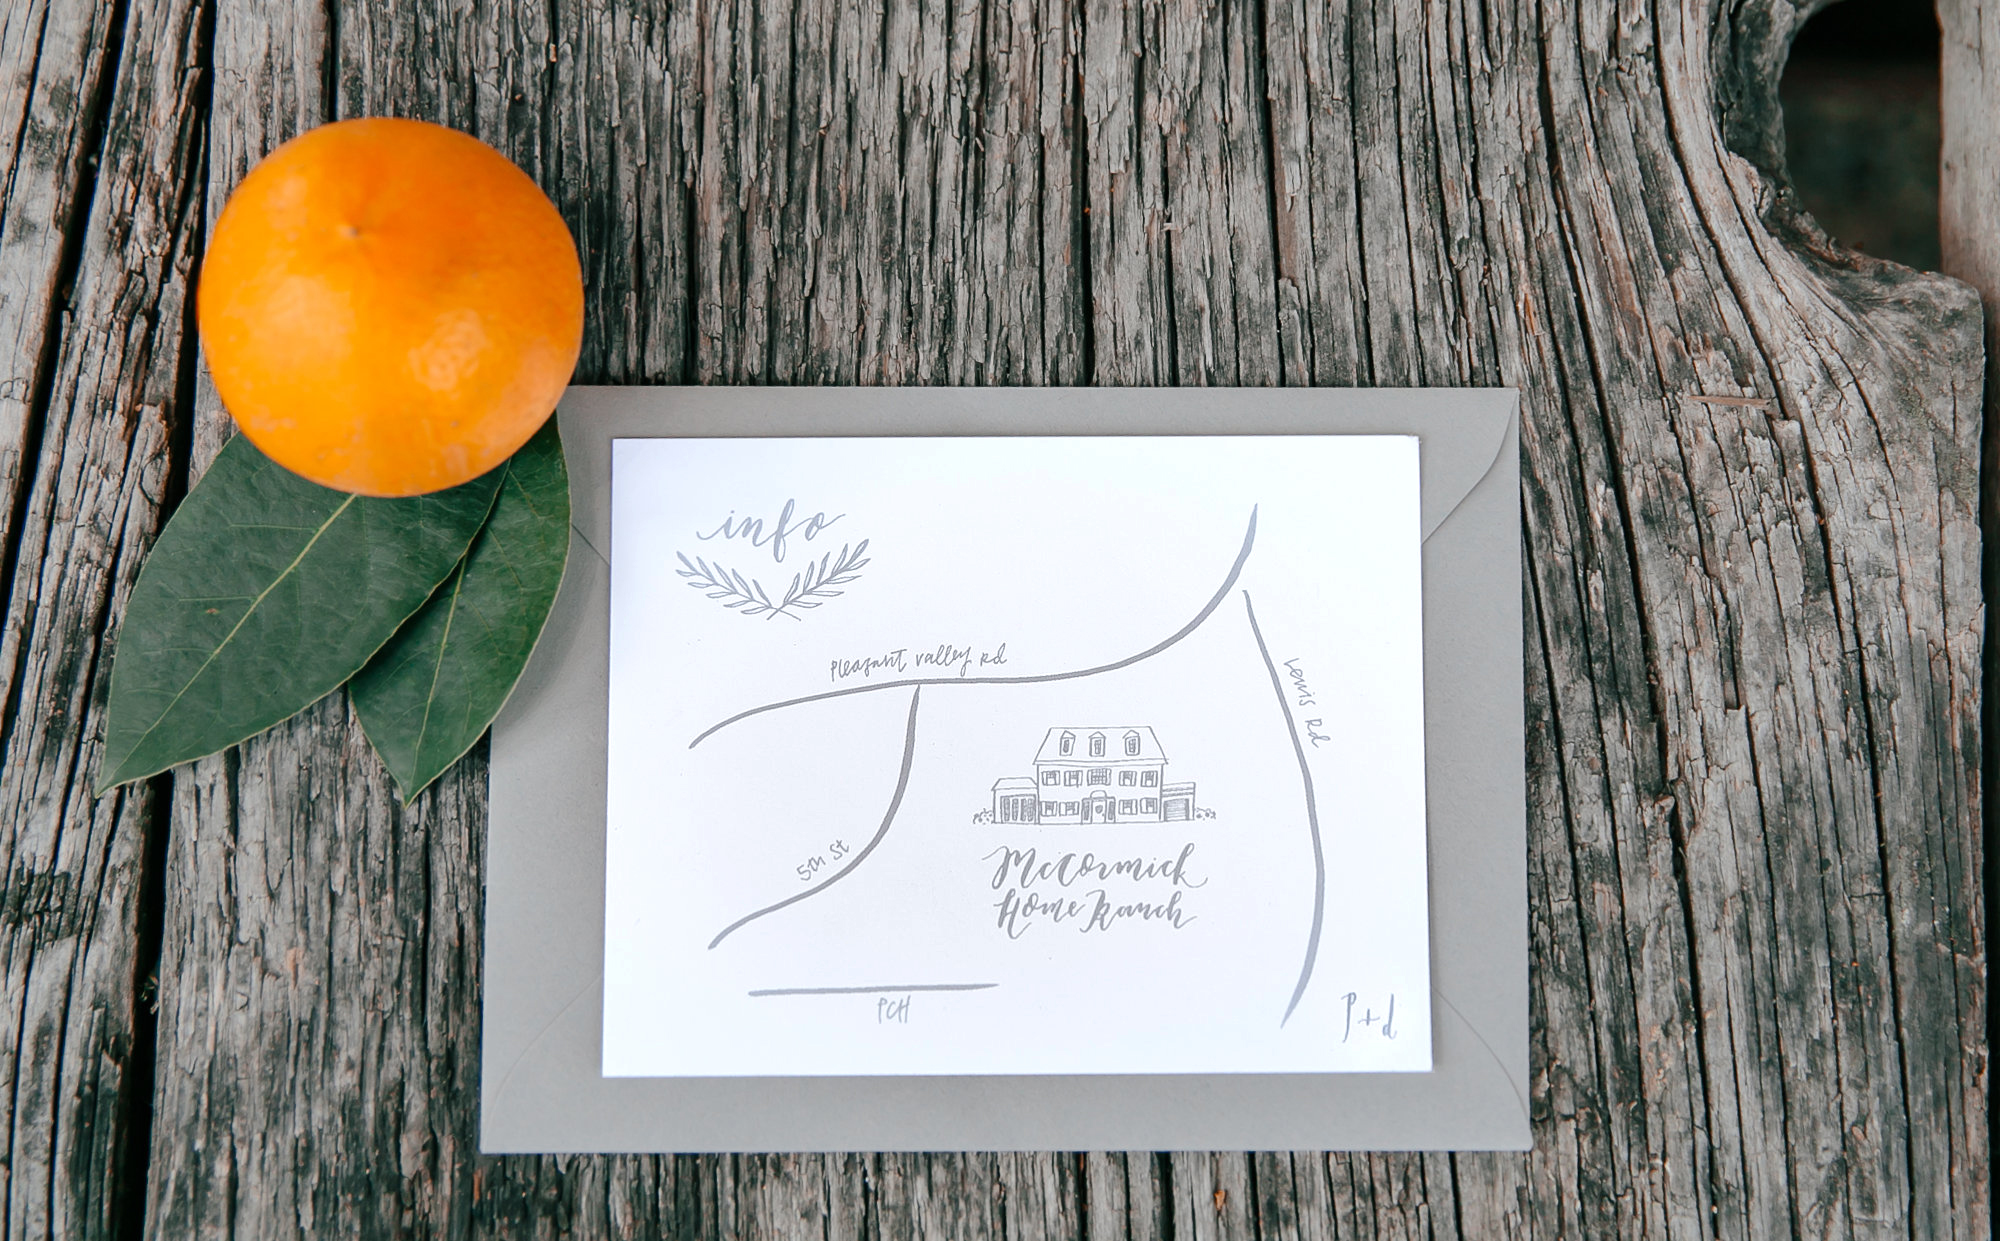 info
Pleasant Valley Rd
Lewis Rd
5th St
McCormick
Home Ranch
PCH
P+d